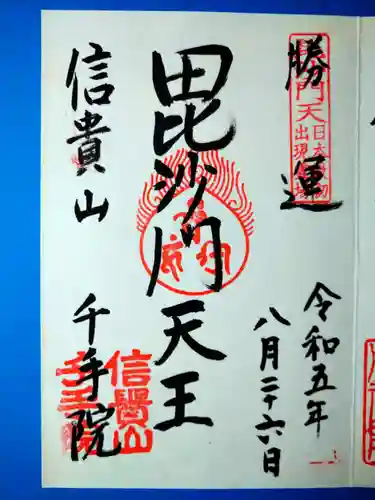 勝運
毘沙門天
日本最初
出現霊場
令和五年
八月二十六日
毘沙門天王
信貴山
千手院
信貴山
千手院